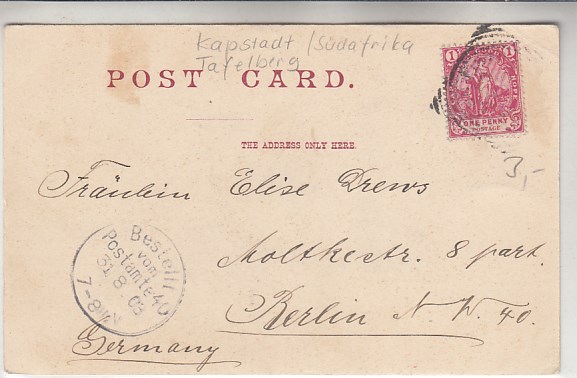 Kapstadt / Südafrika
Tafelberg
POST CARD.
1 1
ONE PENNY
POSTAGE
THE ADDRESS ONLY HERE.
3,-
Fräulein Elise Drews
Moltkestr. 8 part.
Berlin N. W. 40.
Germany
Bestellt
vom
Postamte 40
31. 8. 03
7-8½V.